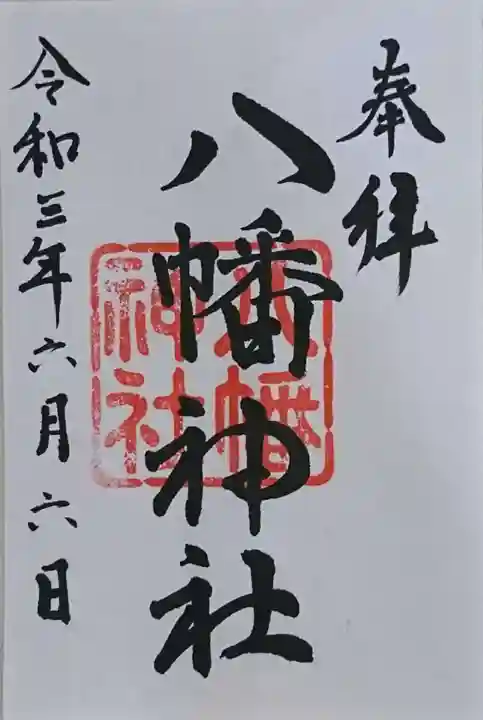 奉拝
八幡神社
八幡
神社
令和三年六月六日